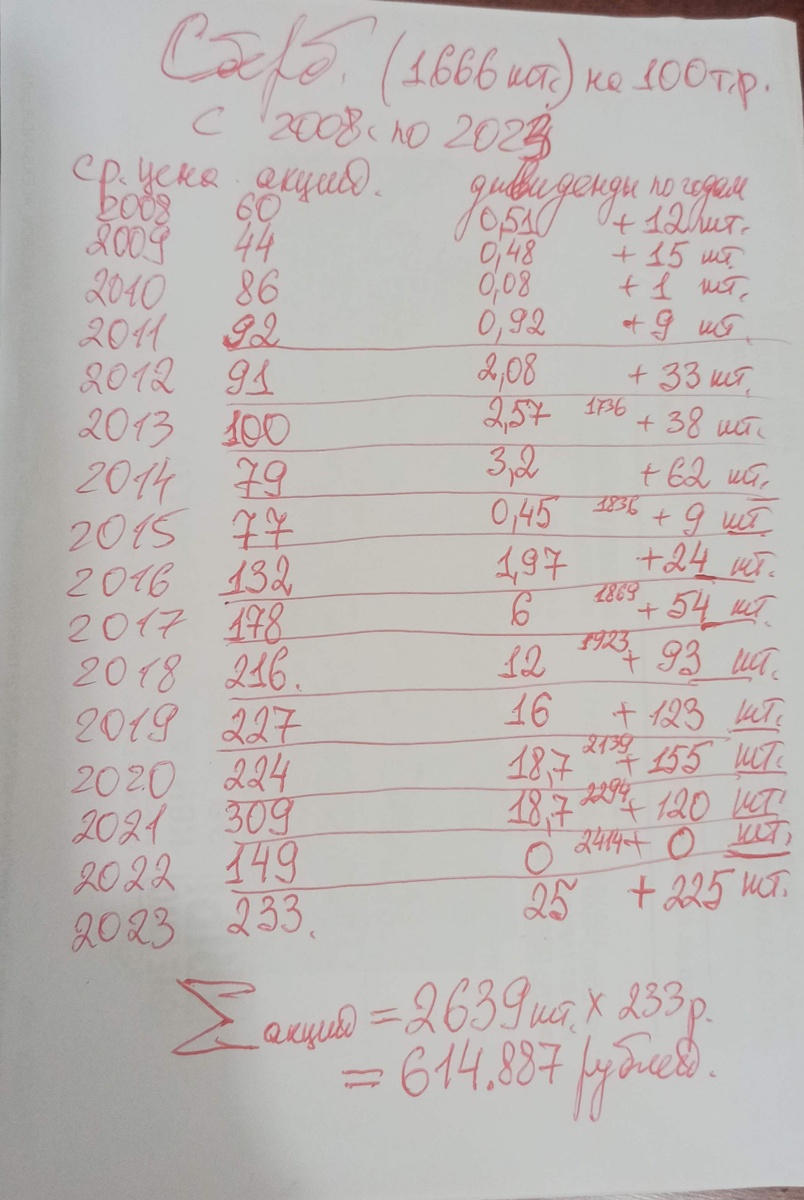 Сбёрб. (1666 шт.) на 100 т.р.
с 2008 по 2023
ср. цена акций. дивиденды по годам
2008 60 0,51 + 12 шт.
2009 44 0,48 + 15 шт
2010 86 0,08 + 1 шт.
2011 92 0,92 + 9 шт.
2012 91 2,08 + 33 шт.
2013 100 2,57 1736 + 38 шт.
2014 79 3,2 + 62 шт.
2015 77 0,45 1836 + 9 шт.
2016 132 1,97 + 24 шт.
2017 178 6 1869 + 54 шт.
2018 216. 12 1923 + 93 шт.
2019 227 16 + 123 шт.
2020 224 18,7 2139 + 155 шт.
2021 309 18,7 2294 + 120 шт.
2022 149 0 2414 + 0 шт.
2023 233. 25 + 225 шт.
Σ акций = 2639 шт. × 233 р.
= 614.887 рублей.